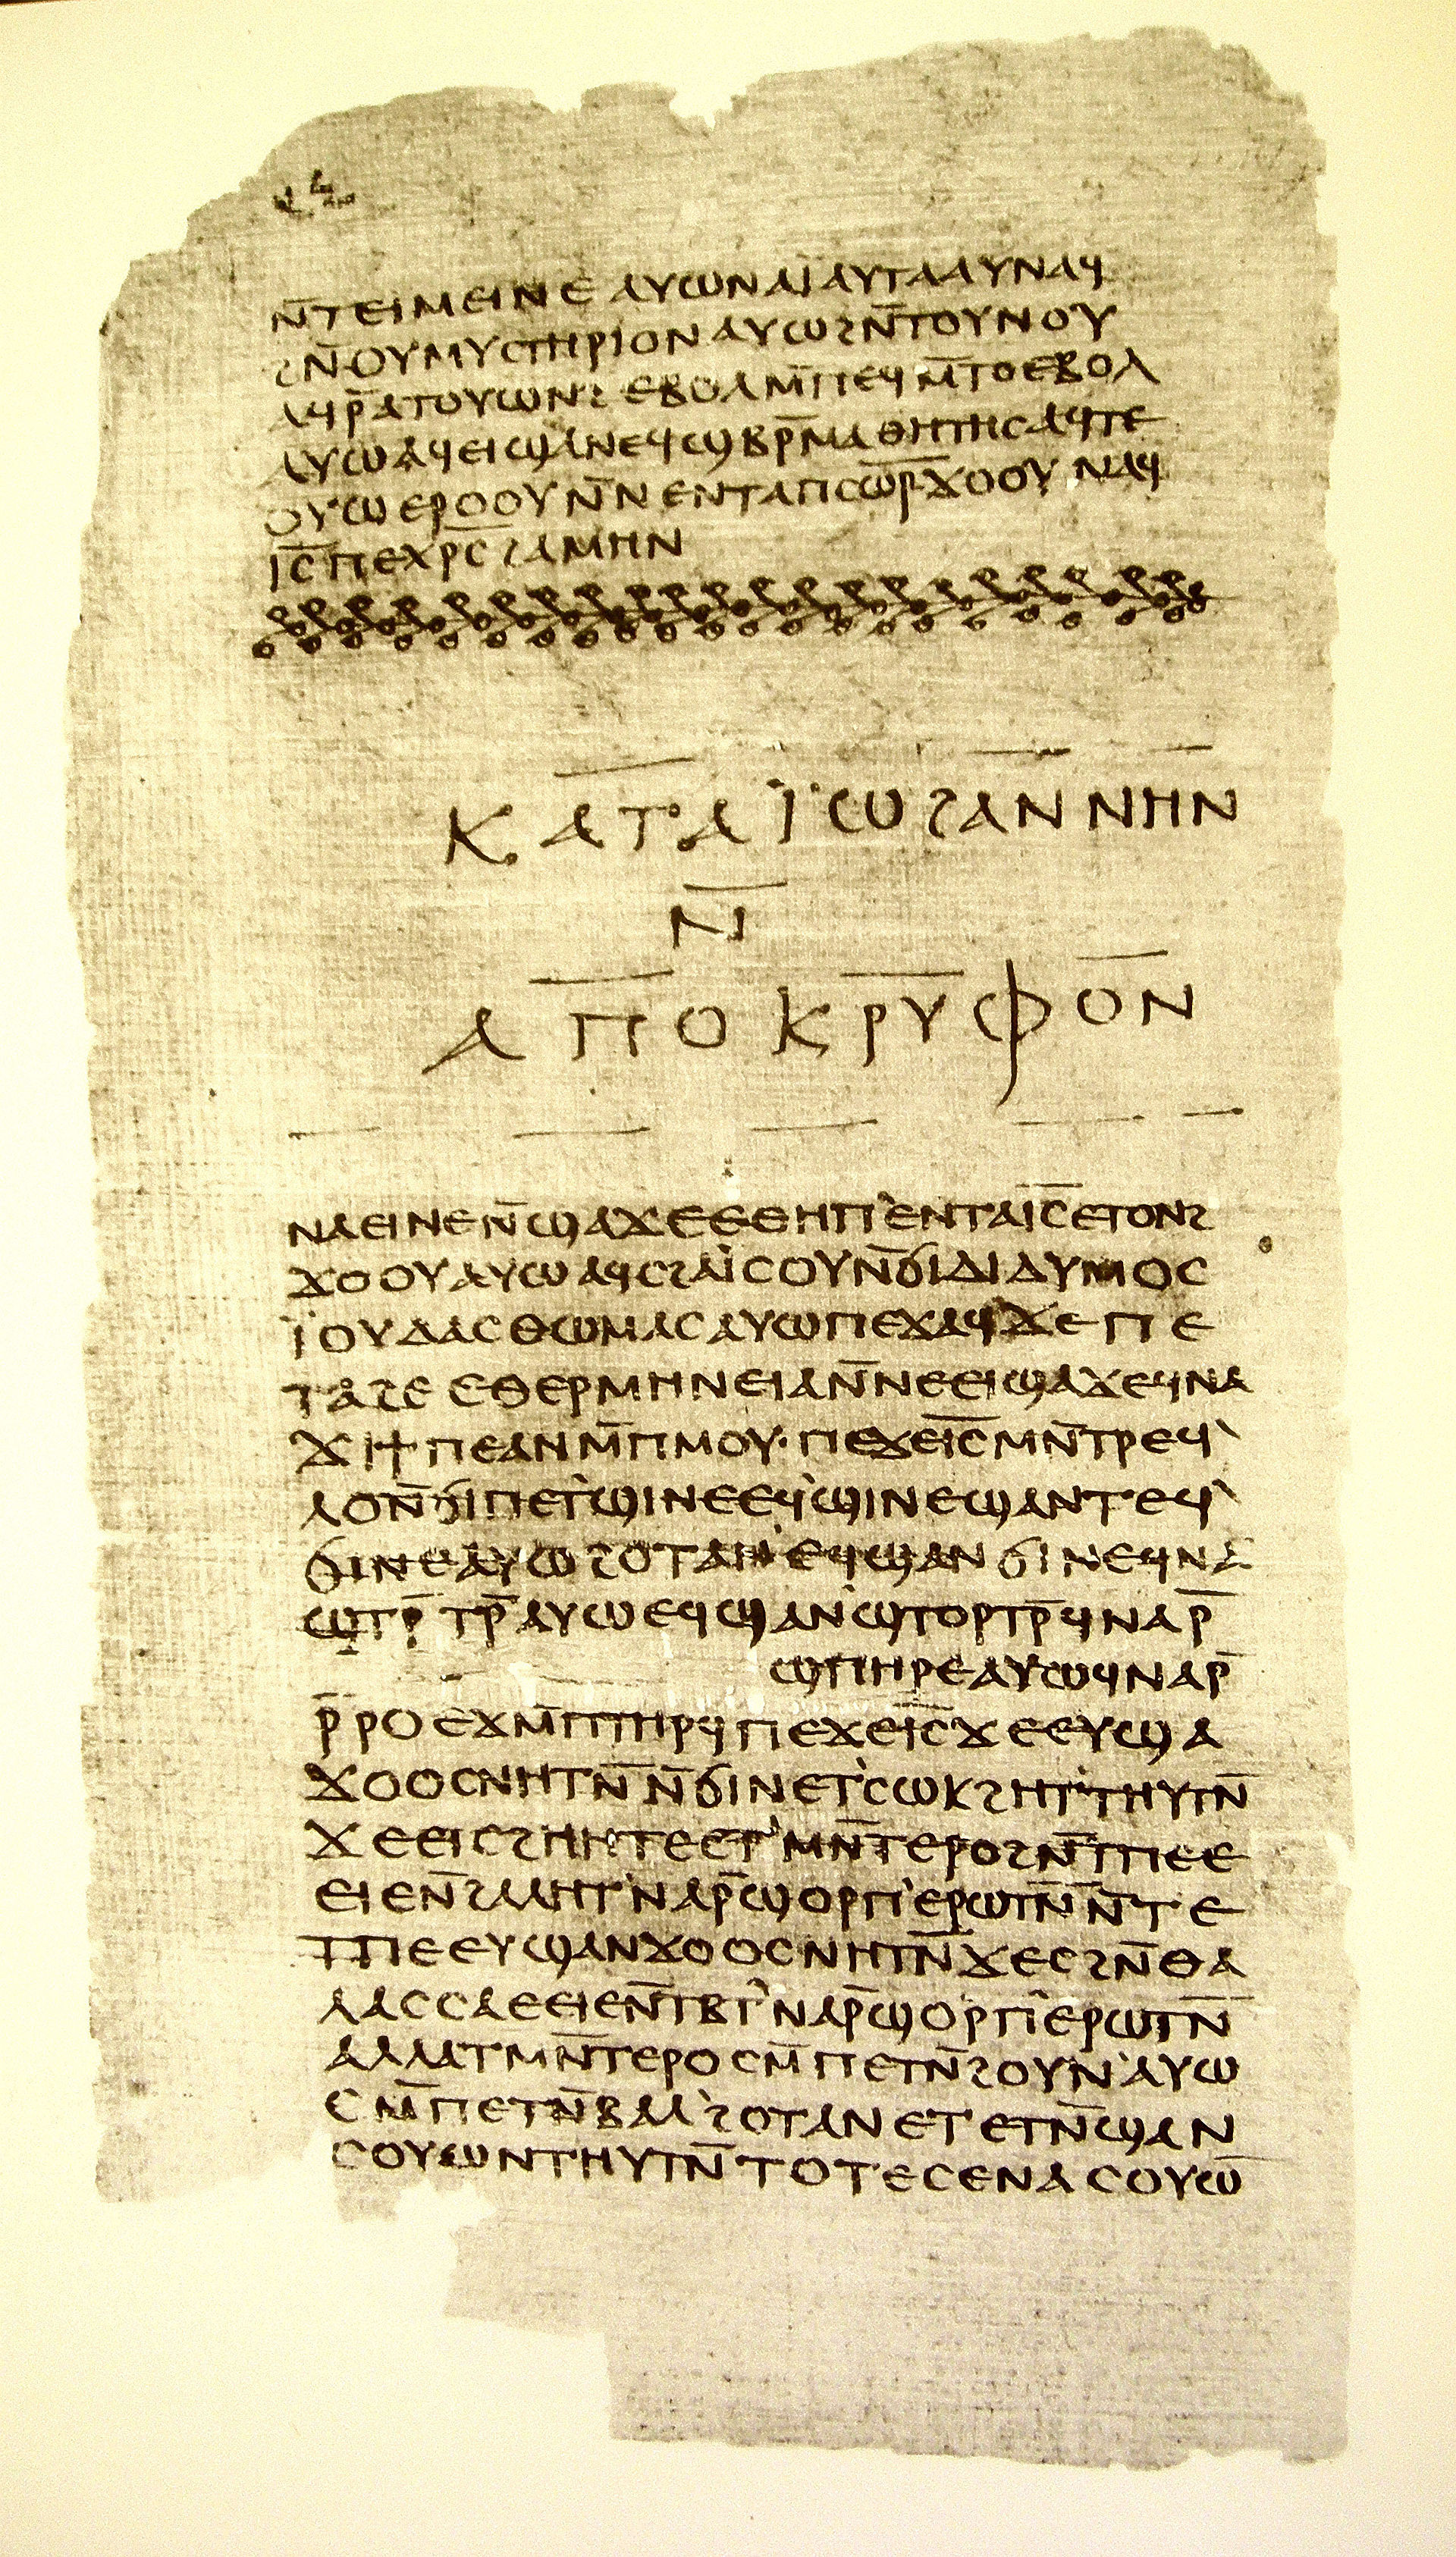 ⲛ̄ⲧⲉⲓⲙⲉⲓⲛⲉ ⲁⲩⲱ ⲛⲁⲓ̈ ⲁⲩⲧⲁⲁⲩ ⲛⲁϥ
ϩⲛ̄ ⲟⲩⲙⲩⲥⲧⲏⲣⲓⲟⲛ ⲁⲩⲱ ϩⲛ̄ ⲧⲟⲩⲛⲟⲩ
ⲁϥⲣ̄ ⲁⲧⲟⲩⲱⲛϩ ⲉⲃⲟⲗ ⲙ̄ⲡⲉϥⲙ̄ⲧⲟ ⲉⲃⲟⲗ
ⲁⲩⲱ ⲁϥⲉⲓ ϣⲁ ⲛⲉϥϣⲃⲣ̄ⲙⲁⲑⲏⲧⲏⲥ ⲁϥⲧⲉ
ⲟⲩⲱ ⲉⲣⲟⲟⲩ ⲛ̄ⲛⲉⲛⲧⲁ ⲡⲥⲱ̄ⲣ̄ ϫⲟⲟⲩ ⲛⲁϥ
ⲓ̄ⲥ̄ ⲡⲉⲭⲣ̄ⲥ̄ ϩⲁⲙⲏⲛ
ⲕⲁⲧⲁ ⲓ̈ⲱϩⲁⲛⲛⲏⲛ
ⲛ̄
ⲁⲡⲟⲕⲣⲩⲫⲟⲛ
ⲛⲁⲉⲓ ⲛⲉ ⲛ̄ϣⲁϫⲉ ⲉⲑⲏⲡ ⲉⲛⲧⲁ ⲓ̄ⲥ̄ ⲉⲧⲟⲛϩ
ϫⲟⲟⲩ ⲁⲩⲱ ⲁϥⲥϩⲁⲓ̈ⲥⲟⲩ ⲛ̄ϭⲓ ⲇⲓⲇⲩⲙⲟⲥ
ⲓ̈ⲟⲩⲇⲁⲥ ⲑⲱⲙⲁⲥ ⲁⲩⲱ ⲡⲉϫⲁϥ ϫⲉ ⲡⲉ
ⲧⲁϩⲉ ⲉⲑⲉⲣⲙⲏⲛⲉⲓⲁ ⲛ̄ⲛⲉⲉⲓϣⲁϫⲉ ϥⲛⲁ
ϫⲓ ϯⲡⲉ ⲁⲛ ⲙ̄ⲡⲙⲟⲩ· ⲡⲉϫⲉ ⲓ̄ⲥ̄ ⲙⲛ̄ⲧⲣⲉϥ
ⲗⲟ ⲛ̄ϭⲓ ⲡⲉⲧϣⲓⲛⲉ ⲉϥϣⲓⲛⲉ ϣⲁⲛⲧⲉϥ
ϭⲓⲛⲉ ⲁⲩⲱ ϩⲟⲧⲁⲛ ⲉϥϣⲁⲛϭⲓⲛⲉ ϥⲛⲁ
ϣⲧⲣ̄ⲧⲣ̄ ⲁⲩⲱ ⲉϥϣⲁⲛϣⲧⲟⲣⲧⲣ̄ ϥⲛⲁⲣ̄
ϣⲡⲏⲣⲉ ⲁⲩⲱ ϥⲛⲁⲣ̄
ⲣ̄ⲣⲟ ⲉϫⲙ̄ ⲡⲧⲏⲣϥ ⲡⲉϫⲉ ⲓ̄ⲥ̄ ϫⲉ ⲉⲩϣⲁ
ϫⲟⲟⲥ ⲛⲏⲧⲛ̄ ⲛ̄ϭⲓ ⲛⲉⲧⲥⲱⲕ ϩⲏⲧ ⲧⲏⲩⲧⲛ̄
ϫⲉ ⲉⲓⲥϩⲏⲏⲧⲉ ⲉⲧⲙⲛ̄ⲧⲉⲣⲟ ϩⲛ̄ ⲧⲡⲉ ⲉ
ⲉⲓⲉ ⲛ̄ϩⲁⲗⲏⲧ ⲛⲁⲣ̄ ϣⲟⲣⲡ ⲉⲣⲱⲧⲛ̄ ⲛ̄ⲧⲉ
ⲧⲡⲉ ⲉⲩϣⲁⲛϫⲟⲟⲥ ⲛⲏⲧⲛ̄ ϫⲉ ⲥϩⲛ̄ ⲑⲁ
ⲗⲁⲥⲥⲁ ⲉⲉⲓⲉ ⲛ̄ⲧⲃⲧ ⲛⲁⲣ̄ ϣⲟⲣⲡ ⲉⲣⲱⲧⲛ̄
ⲁⲗⲗⲁ ⲧⲙⲛ̄ⲧⲉⲣⲟ ⲥⲙ̄ⲡⲉⲧⲛ̄ϩⲟⲩⲛ ⲁⲩⲱ
ⲥⲙ̄ⲡⲉⲧⲛ̄ⲃⲁⲗ ϩⲟⲧⲁⲛ ⲉⲧⲉⲧⲛ̄ϣⲁⲛ
ⲥⲟⲩⲱⲛ ⲧⲏⲩⲧⲛ̄ ⲧⲟⲧⲉ ⲥⲉⲛⲁⲥⲟⲩⲱ̄